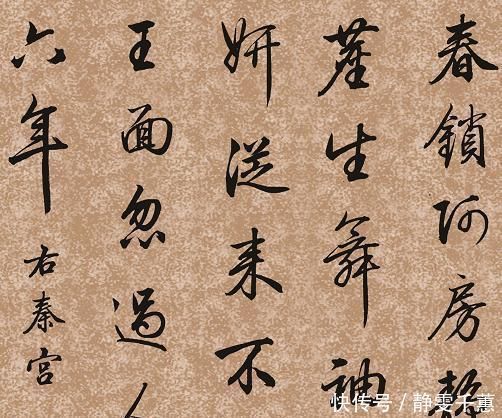 春鎖阿房
塵生舞袖
妍從来不
王面忽過人
六年
右秦宮
快传号/静雯千蕙